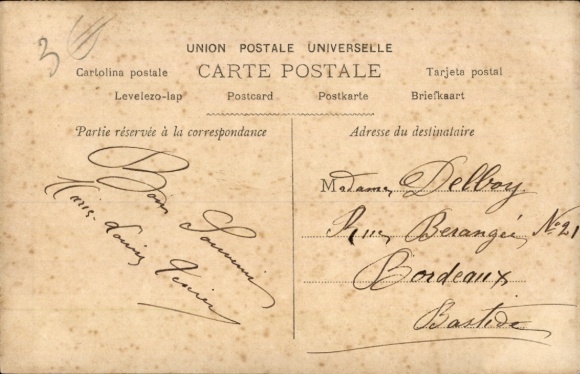 3
UNION POSTALE UNIVERSELLE
Cartolina postale CARTE POSTALE Tarjeta postal
Levelezo-lap Postcard Postkarte Briefkaart
Partie réservée à la correspondance
Adresse du destinataire
Bon Souvenir
Louis
Madame Delboy
Rue Berangé No 21
Bordeaux
Bastide